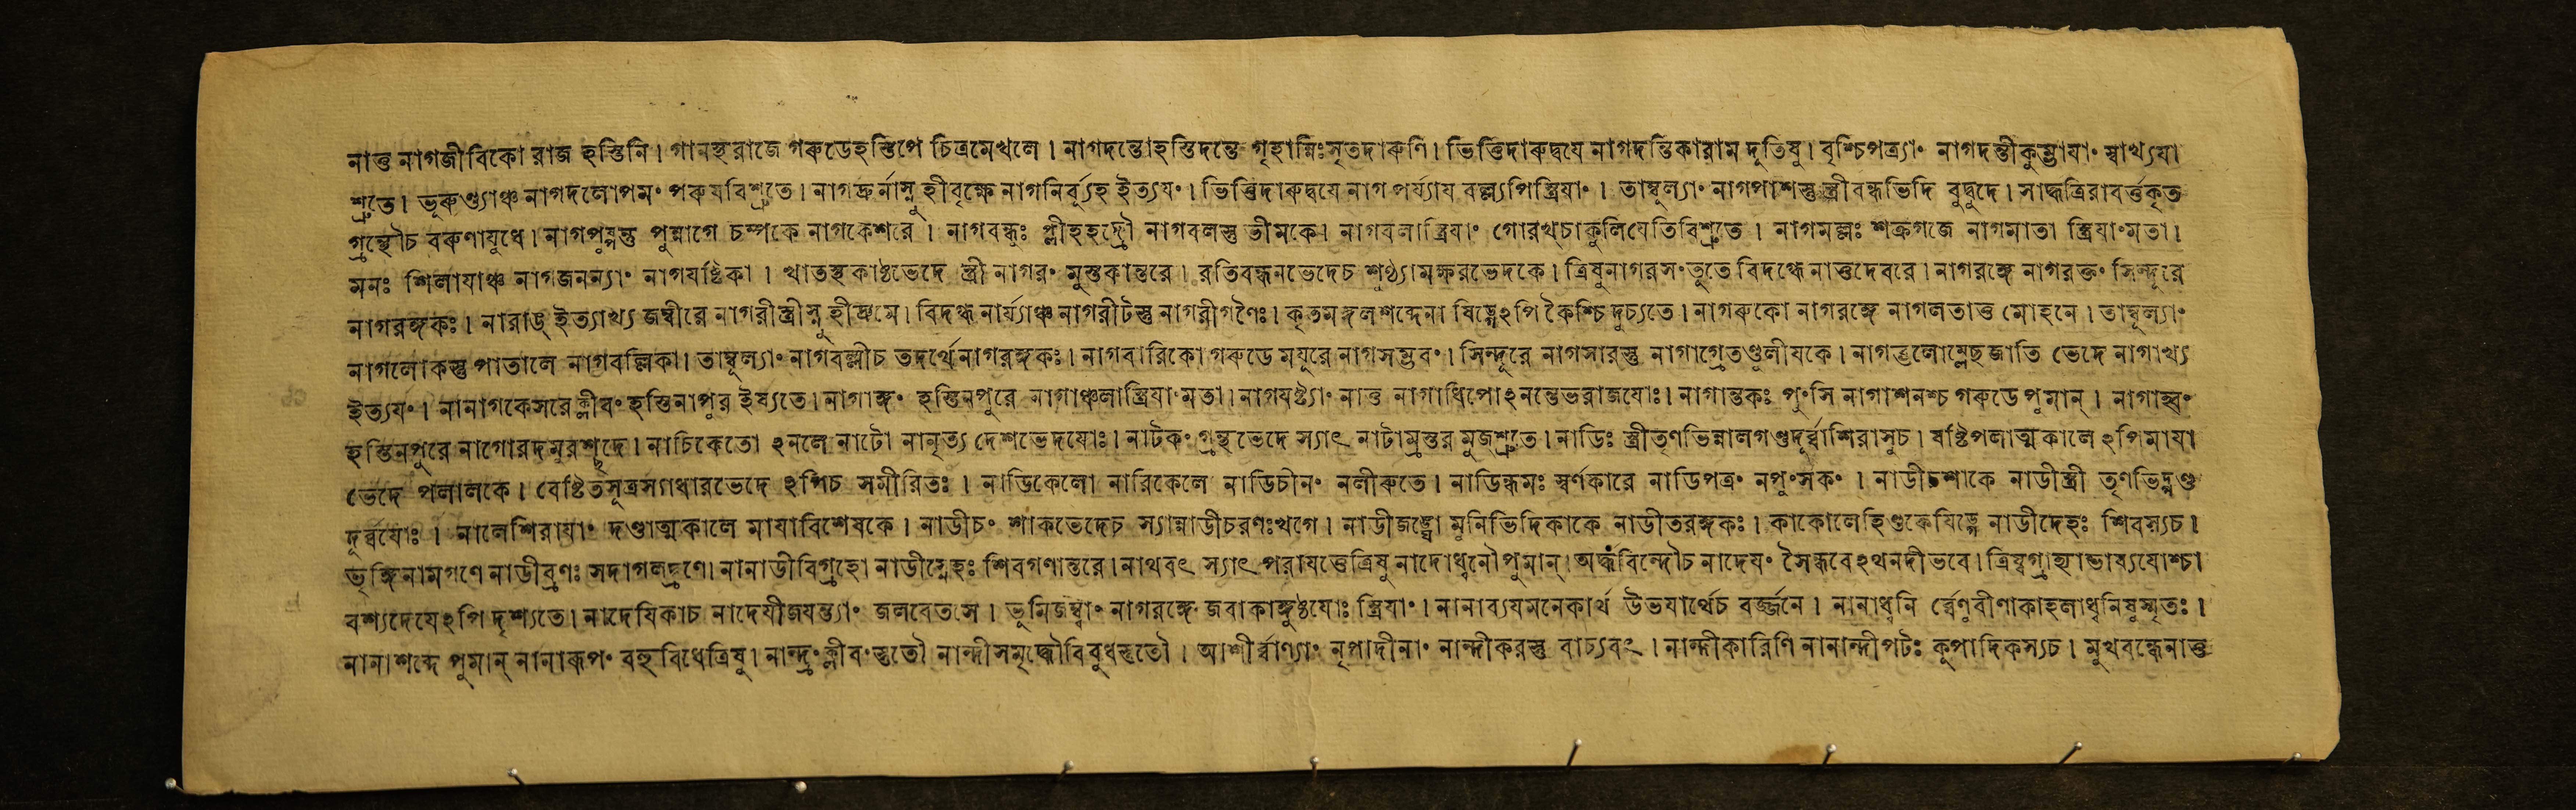 নাত্ত নাগজীবিকো রাজ হস্তিনি। গানন্থরাজে গৰুডেহস্তিপে চিত্রমেখলে। নাগদন্তোহস্তিদন্তে গৃহান্নিঃসৃতদাৰুণি। ভিত্তিদাৰুদ্বযে নাগদন্তিকারাম দূতিষু। বৃশ্চিপত্র্যা॰ নাগদন্তীকুম্ভাযা॰ স্বাখ্যযা
শ্রুতে। ভূৰুণ্ড্যাঞ্চ নাগদলোপম॰ পৰুষবিশ্রুতে। নাগদ্রুর্নাস্নুহীবৃক্ষে নাগনির্ব্যূহ ইত্যয॰। ভিত্তিদাৰুদ্বযে নাগ পর্য্যায বল্ল্যপিস্ত্রিযা॰। তাম্বুল্যা॰ নাগপাশস্তু স্ত্রীবন্ধভিদি বুদ্বুদে। সার্দ্ধত্রিরাবর্ত্তকৃত
গ্রন্থৌচ বৰুণাযুধে। নাগপুষ্পন্তু পুন্নাগে চম্পকে নাগকেশরে। নাগবন্ধুঃ প্লীহহদ্রৌ নাগবলস্তু ভীমকে। নাগবলাস্ত্রিযা॰ গোরখ্চাকুলিযেতিবিশ্রুতে। নাগমল্লঃ শক্রগজে নাগমাতা স্ত্রিযা॰মতা।
মনঃ শিলাযাঞ্চ নাগজনন্যা॰ নাগযষ্টিকা। খাতস্থকাষ্ঠভেদে স্ত্রী নাগর॰ মুস্তকান্তরে। রতিবন্ধনভেদেচ শুণ্ঠ্যামক্ষরভেদকে। ত্রিষুনাগরস॰ভূতে বিদগ্ধেনাত্তুদেবরে। নাগরঙ্গে নাগরক্ত॰ সিন্দূরে
নাগরঙ্গকঃ। নারাঙ্ইত্যাখ্য জম্বীরে নাগরীস্ত্রীস্নুহীদ্রুমে। বিদগ্ধ নার্য্যাঞ্চ নাগরীটস্তু নাগরীগণৈঃ। কৃতমঙ্গলশব্দেনা ষিড্গেঽপি কৈশ্চিদুচ্যতে। নাগৰুকো নাগরঙ্গে নাগলতাত্ত মোহনে। তাম্বূল্যা॰
নাগলোকস্তু পাতালে নাগবল্লিকা। তাম্বূল্যা॰ নাগবল্লীচ তদর্থেনাগরঙ্গকঃ। নাগবারিকো গৰুডে মযূরে নাগসম্ভব॰। সিন্দূরে নাগসারস্তু নাগাগ্রেতণ্ডুলীযকে। নাগত্তলোম্লেছজাতি ভেদে নাগাখ্য
ইত্যয॰। নানাগকেসরেক্লীব॰ হস্তিনাপুর ইষ্যতে। নাগাঙ্গ॰ হস্তিনপুরে নাগাঞ্চলাস্ত্রিযা॰মতা। নাগযষ্ট্যা॰ নাত্ত নাগাধিপোঽনন্তেভরাজযোঃ। নাগান্তকঃ পু॰সি নাগাশনশ্চ গৰুডেপুমান্। নাগাহ্ব॰
হস্তিনপুরে নাগোরদমুরশ্ছদে। নাচিকেতো ঽনলে নাটো নানৃত্য দেশভেদযোঃ। নাটক॰ গ্রন্থভেদে স্যাৎ নাটাম্রন্তর মুজশ্রুতে। নাডিঃ স্ত্রীতৃণভিন্নালগণ্ডদূর্ব্বাশিরাসুচ। ষষ্টিপলাত্মকালে ঽপিমাযা
ভেদে পলালকে। বেষ্টিতসূত্রসগধারভেদে ঽপিচ সমীরিতঃ। নাডিকেলো নারিকেলে নাডিচীন॰ নলীৰুতে। নাডিন্ধমঃ স্বর্ণকারে নাডিপত্র॰ নপু॰সক॰। নাডীচশাকে নাডীস্ত্রী তৃণভিদ্গণ্ড
দূর্ব্বযোঃ। নালেশিরাযা॰ দণ্ডাত্মকালে মাযাবিশেষকে। নাডীচ॰ শাকভেদেচ স্যান্নাডীচরণঃখগে। নাডীজঙ্ঘো মুনিভিদিকাকে নাডীতরঙ্গকঃ। কাকোলেহিণ্ডকেষিড্গে নাডীদেহঃ শিবস্যচ।
ভৃঙ্গিনামগণে নাডীব্রণঃ সদাগলদ্ব্রণে। নানাডীবিগ্রহো নাডীস্নেহঃ শিবগণান্তরে। নাথবৎ স্যাৎ পরাযত্তেত্রিষু নাদোধ্বনৌপুমান্। অর্দ্ধবিন্দৌচ নাদেয॰ সৈন্ধবেঽথনদীভবে। ত্রিষ্বগ্রাহ্যান্তাব্যযোশ্চা
বশ্যদেযেঽপি দৃশ্যতে। নাদেযিকাচ নাদেযীজযন্ত্যা॰ জলবেতসে। ভূমিজম্বা॰ নাগরঙ্গে জবাকাঙ্গুষ্ঠযোঃ স্ত্রিযা॰। নানাব্যযমনেকার্থ উভযার্থেচ বর্জ্জনে। নানাধ্বনি র্ব্বেণুবীণাকাহলাধ্বনিষুস্মৃতঃ।
নানাশব্দে পুমান্ নানাৰূপ॰ বহুবিধেত্রিষু। নান্দ্র॰ক্লীব॰স্তুতৌ নান্দীসমৃদ্ধৌবিবুধস্তুতৌ। আশীর্ব্বাণ্যা॰ নৃপাদীনা॰ নান্দীকরস্তু বাচ্যবৎ। নান্দীকারিণি নানান্দীপটঃ কূপাদিকস্যচ। মুখবন্ধেনাত্ত